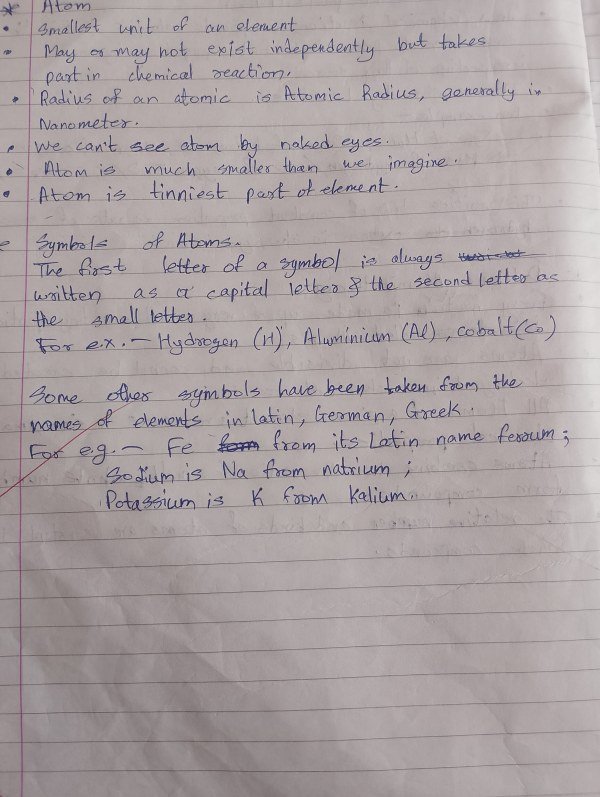 * Atom
• Smallest unit of an element
• May or may not exist independently but takes
part in chemical reaction.
• Radius of an atomic is Atomic Radius, generally in
Nanometer.
• We can't see atom by naked eyes.
• Atom is much smaller than we imagine.
• Atom is tinniest part of element.
Symbols of Atoms.
The first letter of a symbol is always
written as a capital letter & the second letter as
the small letter.
For e.x. - Hydrogen (H), Aluminium (Al), cobalt(Co)
Some other symbols have been taken from the
names of elements in latin, German, Greek.
For e.g. - Fe from its Latin name ferrum;
Sodium is Na from natrium;
Potassium is K from Kalium.